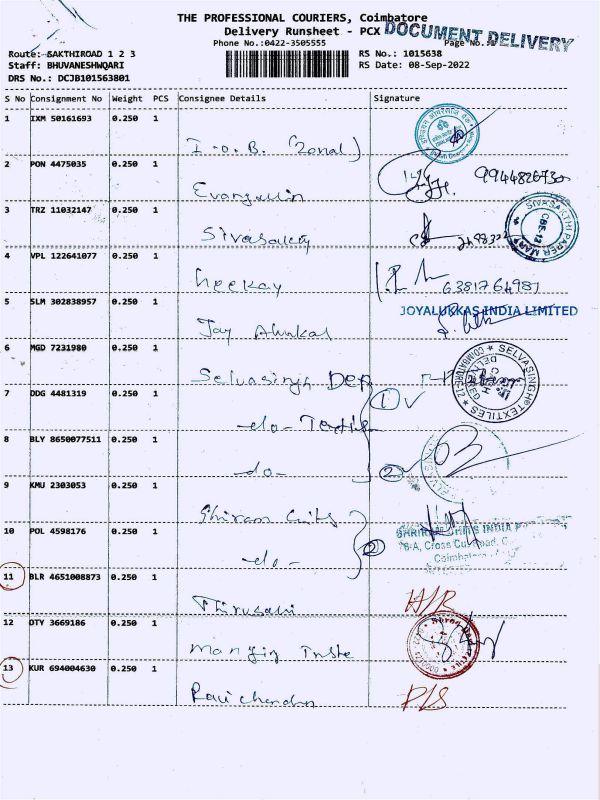 THE PROFESSIONAL COURIERS, Coimbatore
Delivery Runsheet - PCX
DOCUMENT DELIVERY
Phone No.:0422-3505555
Page No.:
Route: SAKTHIROAD 1 2 3
RS No.: 1015638
Staff: BHUVANESHWQARI
RS Date: 08-Sep-2022
DRS No.: DCJB101563801
S No Consignment No Weight PCS Consignee Details Signature
1 IXM 50161693 0.250 1
I.O.B. (Zonal)
2 PON 4475035 0.250 1
9944826730
Evangulin
3 TRZ 11032147 0.250 1
SIVASAKTHI PAPER MART
CBE-12
Sivasakty
4 VPL 122641077 0.250 1
heekay
6381764981
5 SLM 302838957 0.250 1
JOYALUKKAS INDIA LIMITED
Joy Alukkal
6 MGD 7231980 0.250 1
SELVASINGH TEXTILES
COIMBATORE-12
Selvasingh
7 DDG 4481319 0.250 1
1
-do- Textile
8 BLY 8650077511 0.250 1
-do-
2
9 KMU 2303053 0.250 1
Shiram Chits
10 POL 4598176 0.250 1
SHRIRAM CHITS INDIA P
-do-
2
Coimbatore
11 BLR 4651008873 0.250 1
Thirusahi
12 OTY 3669186 0.250 1
13 KUR 694004630 0.250 1
Ravichandran